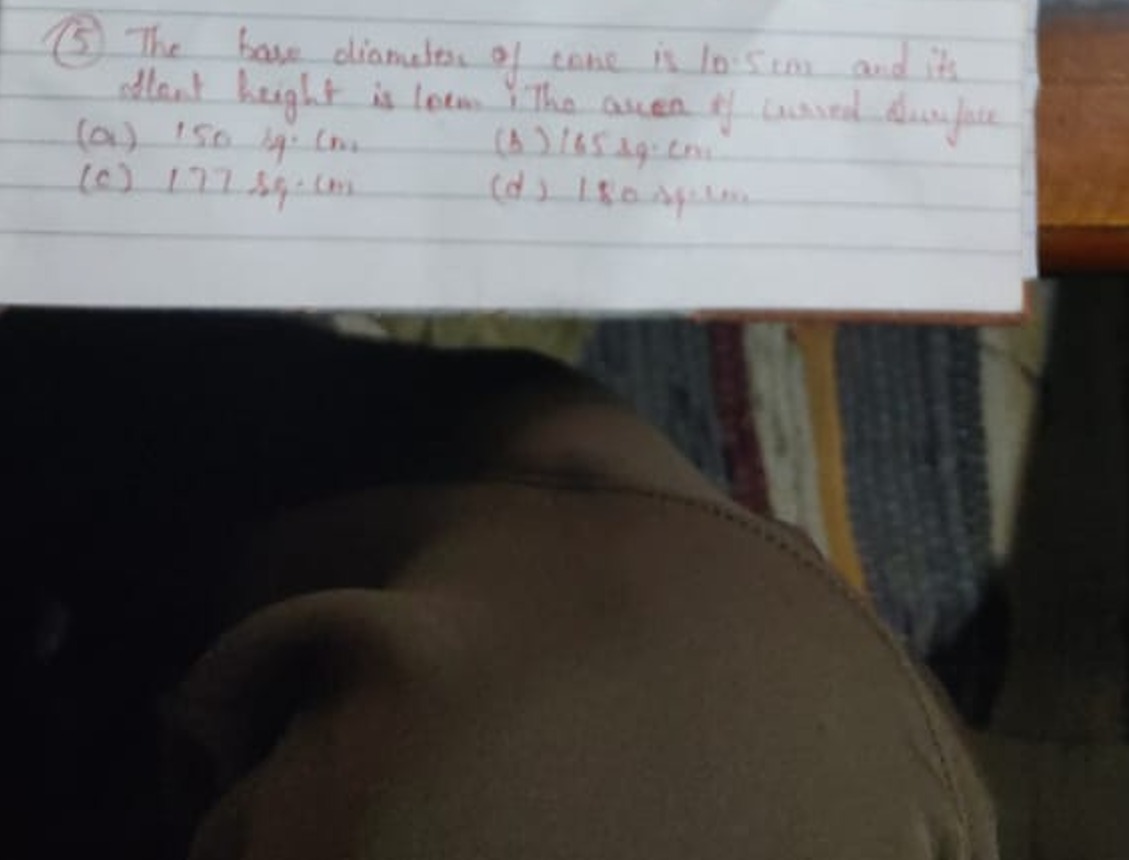 (5) The base diameter of cone is 10.5cm and its
slant height is 10cm. The area of curved surface
(a) 150 sq. cm. (b) 165 sq. cm
(c) 177 sq. cm (d) 180 sq. cm.